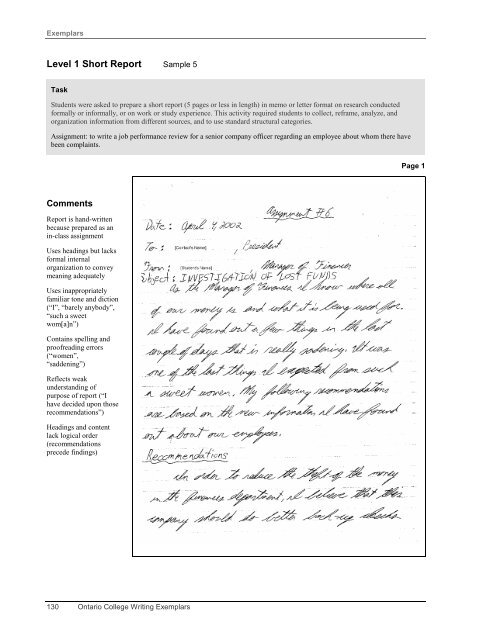 Exemplars
Level 1 Short Report Sample 5
Task
Students were asked to prepare a short report (5 pages or less in length) in memo or letter format on research conducted
formally or informally, or on work or study experience. This activity required students to collect, reframe, analyze, and
organization information from different sources, and to use standard structural categories.
Assignment: to write a job performance review for a senior company officer regarding an employee about whom there have
been complaints.
Page 1
Comments
Report is hand-written
because prepared as an
in-class assignment
Uses headings but lacks
formal internal
organization to convey
meaning adequately
Uses inappropriately
familiar tone and diction
("I", "barely anybody",
"such a sweet
wom[a]n")
Contains spelling and
proofreading errors
("women",
"saddening")
Reflects weak
understanding of
purpose of report ("I
have decided upon those
recommendations")
Headings and content
lack logical order
(recommendations
precede findings)
Assignment #6
Date: April 4, 2002
To: [Contact's Name], President
From: [Student's Name] Manager of Finances
Subject: INVESTIGATION OF LOST FUNDS
As the Manager of Finances, I know where all
of our money is and what it is being used for.
I have found out a few things in the last
couple of days that is really sadening. It was
one of the last things I expected from such
a sweet women. My following recommendations
are based on the new information I have found
out about our employees.
Recommendations
In order to reduce the theft of the money
in the finances department, I believe that this
company should do better back-up checks
130 Ontario College Writing Exemplars